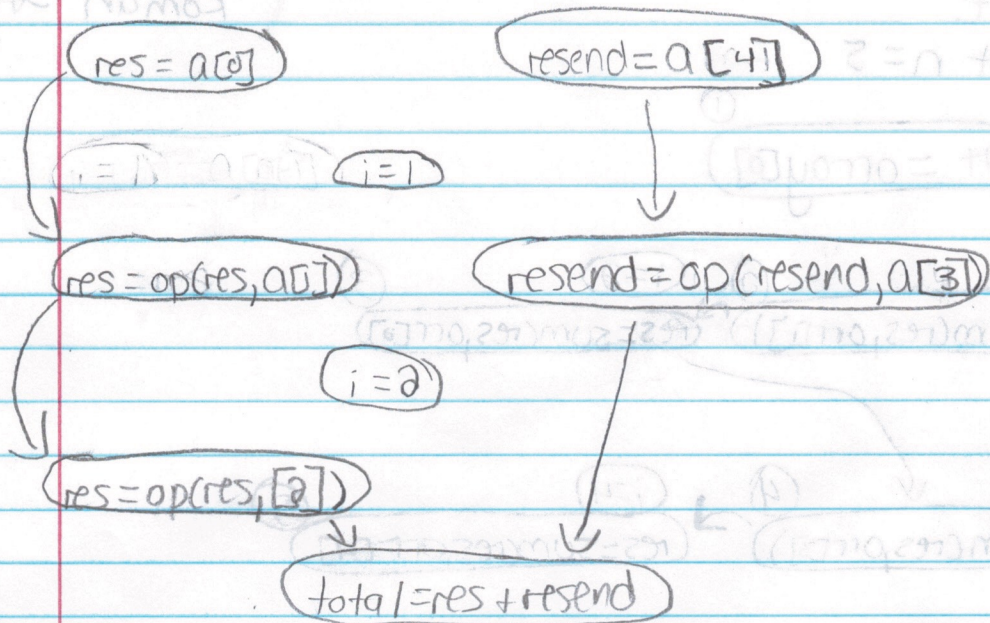 res = a[0]
resend = a[4]
i=1
res = op(res, a[1])
resend = op(resend, a[3])
i=2
res = op(res, [2])
total = res + resend